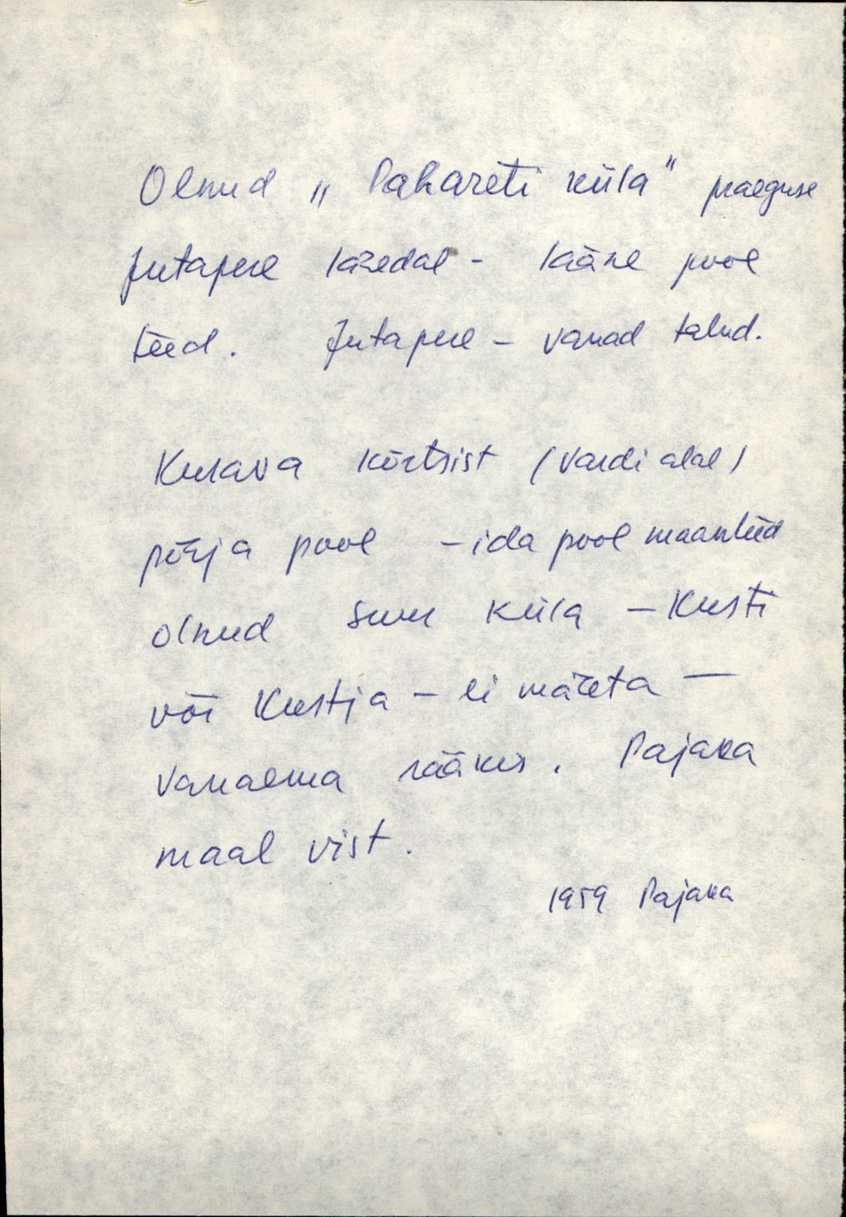 Olnud „Pahareti küla" praeguse
Jutapere kõredal - lääne pool
teed. Jutapere - vanad talud.
Kurava kõrtsist (Vardi alal)
põhja pool - ida pool maanteed
olnud suur küla - Kusti
või Kustja - ei mäleta -
vanaema rääkis. Pajaka
maal vist.
1959 Pajaka